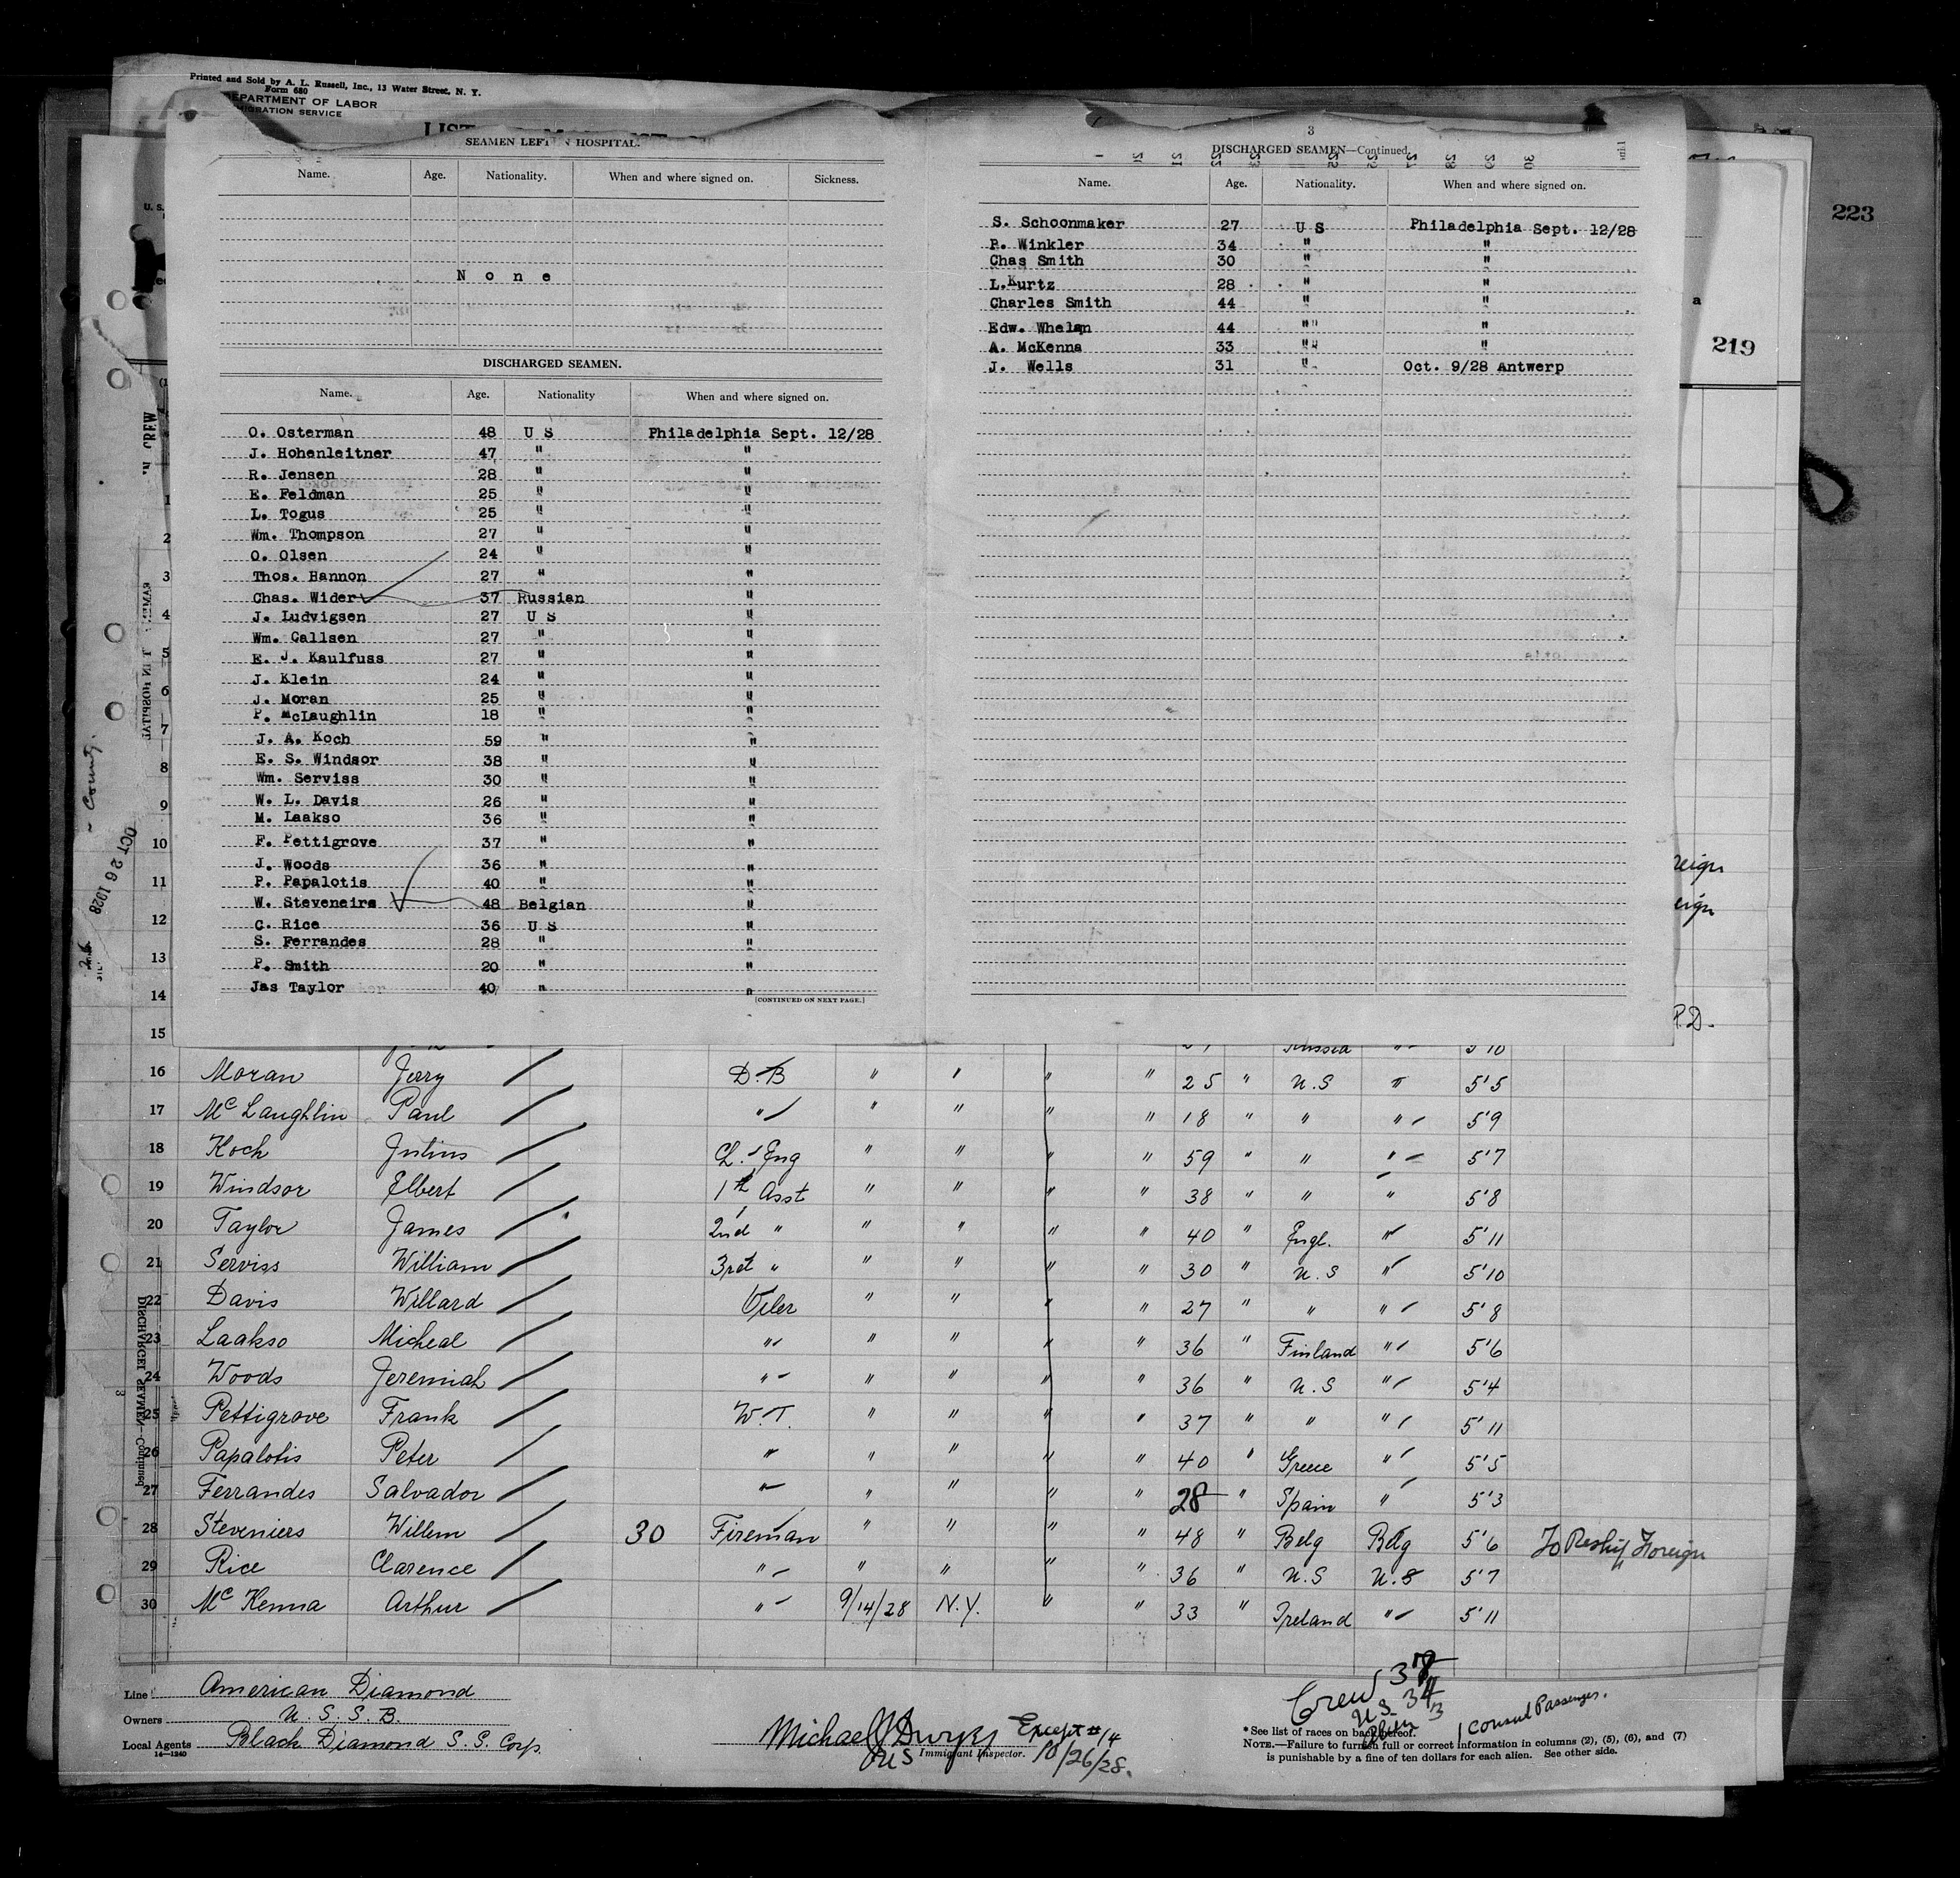 Printed and Sold by A. L. Russell, Inc., 13 Water Street, N. Y.
Form 680
DEPARTMENT OF LABOR
IMMIGRATION SERVICE
SEAMEN LEFT IN HOSPITAL.
Name. Age. Nationality. When and where signed on. Sickness.
None
DISCHARGED SEAMEN.
Name. Age. Nationality When and where signed on.
O. Osterman 48 U S Philadelphia Sept. 12/28
J. Hohenleitner 47 " "
R. Jensen 28 " "
E. Feldman 25 " "
L. Togus 25 " "
Wm. Thompson 27 " "
O. Olsen 24 " "
Thos. Hannon 27 " "
Chas. Wider 37 Russian "
J. Ludvigsen 27 U S "
Wm. Callsen 27 " "
E. J. Kaulfuss 27 " "
J. Klein 24 " "
J. Moran 25 " "
P. McLaughlin 18 " "
J. A. Koch 59 " "
E. S. Windsor 38 " "
Wm. Serviss 30 " "
W. L. Davis 26 " "
M. Laakso 36 " "
F. Pettigrove 37 " "
J. Woods 36 " "
P. Papalotis 40 " "
W. Steveneirs 48 Belgian "
C. Rice 36 U S "
S. Ferrandes 28 " "
P. Smith 20 " "
Jas Taylor 40 " "
[CONTINUED ON NEXT PAGE.]
3
DISCHARGED SEAMEN—Continued.
Name. Age. Nationality. When and where signed on.
S. Schoonmaker 27 U S Philadelphia Sept. 12/28
P. Winkler 34 " "
Chas Smith 30 " "
L. Kurtz 28 " "
Charles Smith 44 " "
Edw. Whelan 44 "" "
A. McKenna 33 "" "
J. Wells 31 " Oct. 9/28 Antwerp
223
219
a
reign
eign
P.D.
U. S.
CREW
County.
OCT 26 1928
1
2
3
4
5
6
7
8
9
10
11
12
13
14
15
Russia " 5'10
16 Moran Jerry D.B " " " " 25 " U.S " 5'5
17 McLaughlin Paul " " " " " 18 " " " 5'9
18 Koch Julius Ch. Eng " " " " 59 " " " 5'7
19 Windsor Elbert 1st Asst " " " " 38 " " " 5'8
20 Taylor James 2nd " " " " " 40 " Engl. " 5'11
21 Serviss William 3rd " " " " " 30 " U.S " 5'10
22 Davis Willard Oiler " " " " 27 " " " 5'8
23 Laakso Micheal " " " " " 36 " Finland " 5'6
24 Woods Jeremiah " " " " " 36 " U.S " 5'4
25 Pettigrove Frank W.T. " " " " 37 " " " 5'11
26 Papalotis Peter " " " " " 40 " Greece " 5'5
27 Ferrandes Salvador " " " " " 28 " Spain " 5'3
28 Steveniers Willem 30 Fireman " " " " 48 " Belg Belg 5'6 To Reship Foreign
29 Rice Clarence " " " " " 36 " U.S U.S 5'7
30 McKenna Arthur " 9/14/28 N.Y. " " 33 " Ireland " 5'11
DISCHARGED SEAMEN—Continued
Line American Diamond
Owners U. S. S. B.
Local Agents Black Diamond S. S. Corp.
14—1240
Michael J Dwyer Except #14
Immigrant Inspector. 10/26/28.
Crew 37
U.S. 34
Alien 3
1 Consul Passenger.
*See list of races on back hereof.
NOTE.—Failure to furnish full or correct information in columns (2), (5), (6), and (7)
is punishable by a fine of ten dollars for each alien. See other side.